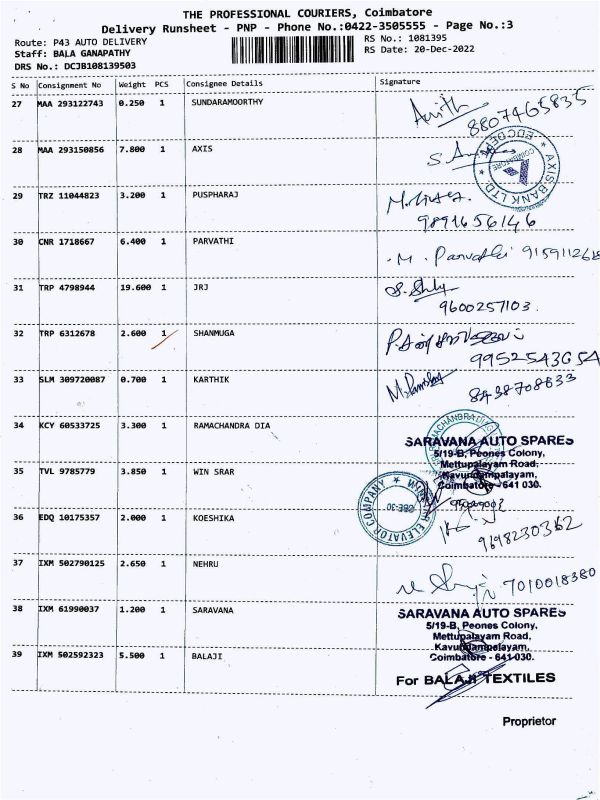 THE PROFESSIONAL COURIERS, Coimbatore
Delivery Runsheet - PNP - Phone No.:0422-3505555 - Page No.:3
Route: P43 AUTO DELIVERY
RS No.: 1081395
Staff: BALA GANAPATHY
RS Date: 20-Dec-2022
DRS No.: DCJB108139503
S No Consignment No Weight PCS Consignee Details Signature
27 MAA 293122743 0.250 1 SUNDARAMOORTHY
8807465835
28 MAA 293150856 7.800 1 AXIS
AXIS BANK LTD. COIMBATORE
29 TRZ 11044823 3.200 1 PUSPHARAJ
9891656146
30 CNR 1718667 6.400 1 PARVATHI M. Parvathi
31 TRP 4798944 19.600 1 JRJ
9600257103.
32 TRP 6312678 2.600 1 SHANMUGA
33 SLM 309720087 0.700 1 KARTHIK
8438708633
34 KCY 60533725 3.300 1 RAMACHANDRA DIA
SARAVANA AUTO SPARES
5/19-B, Peones Colony,
Mettupalayam Road,
Kavundampalayam,
Coimbatore - 641 030.
35 TVL 9785779 3.850 1 WIN SRAR
ELEVATOR COMPANY CBE-30
36 EDQ 10175357 2.000 1 KOESHIKA
9698230362
37 IXM 502790125 2.650 1 NEHRU
7010018380
38 IXM 61990037 1.200 1 SARAVANA
SARAVANA AUTO SPARES
5/19-B, Peones Colony,
Mettupalayam Road,
Kavundampalayam,
Coimbatore - 641 030.
39 IXM 502592323 5.500 1 BALAJI
For BALAJI TEXTILES
Proprietor